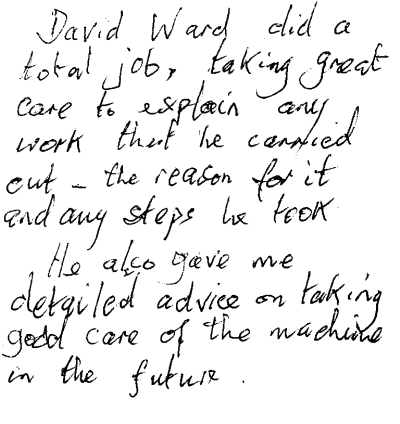 David Ward did a
total job, taking great
care to explain any
work that he carried
out - the reason for it
and any steps he took
He also gave me
detailed advice on taking
good care of the machine
in the future.